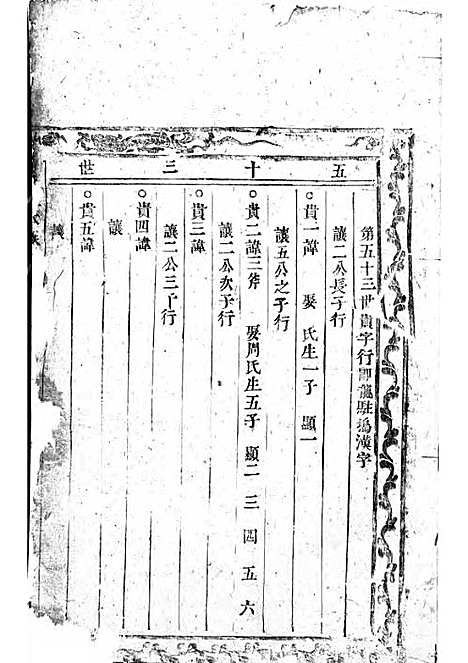 五十三世
第五十三世貴字行即龍駐爲漢字
讓二公長子行
○貴一諱 娶 氏生一子 顯一
讓五公之子行
○貴二諱三斧 娶周氏生五子 顯二 三 四 五 六
讓二公次子行
○貴三諱
讓二公三子行
○貴四諱
讓
○貴五諱